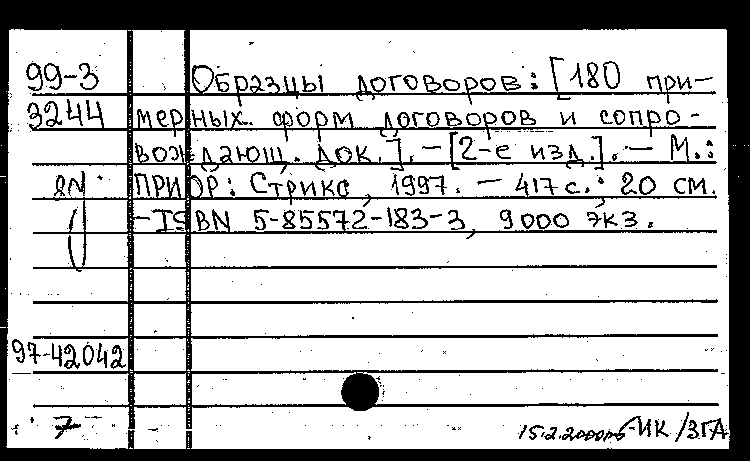 99-3 Образцы договоров: [180 при-
3244 мерных форм договоров и сопро-
вождающ. док.]. - [2-е изд.]. - М.:
ПРИОР: Стрикс, 1997. - 417 с.; 20 см.
-ISBN 5-85572-183-3, 9000 экз.
97-42042
7 15.2.2000 ИК/ЗГА